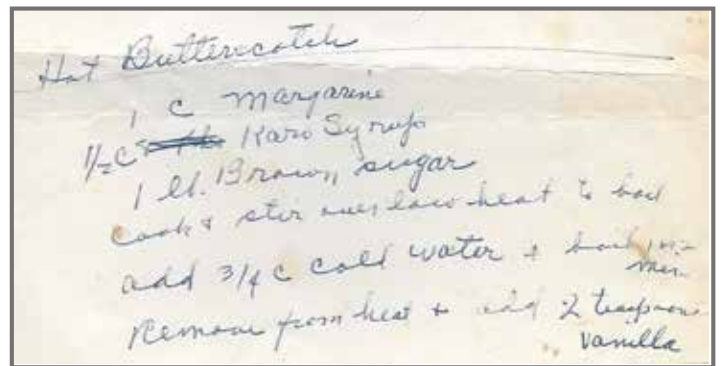 Hot Butterscotch
1 c Margarine
1/2 C Karo Syrup
1 lb. Brown sugar
Cook & stir over low heat to boil
add 3/4 c cold water & boil 1
min
Remove from heat & add 2 teaspoons
vanilla